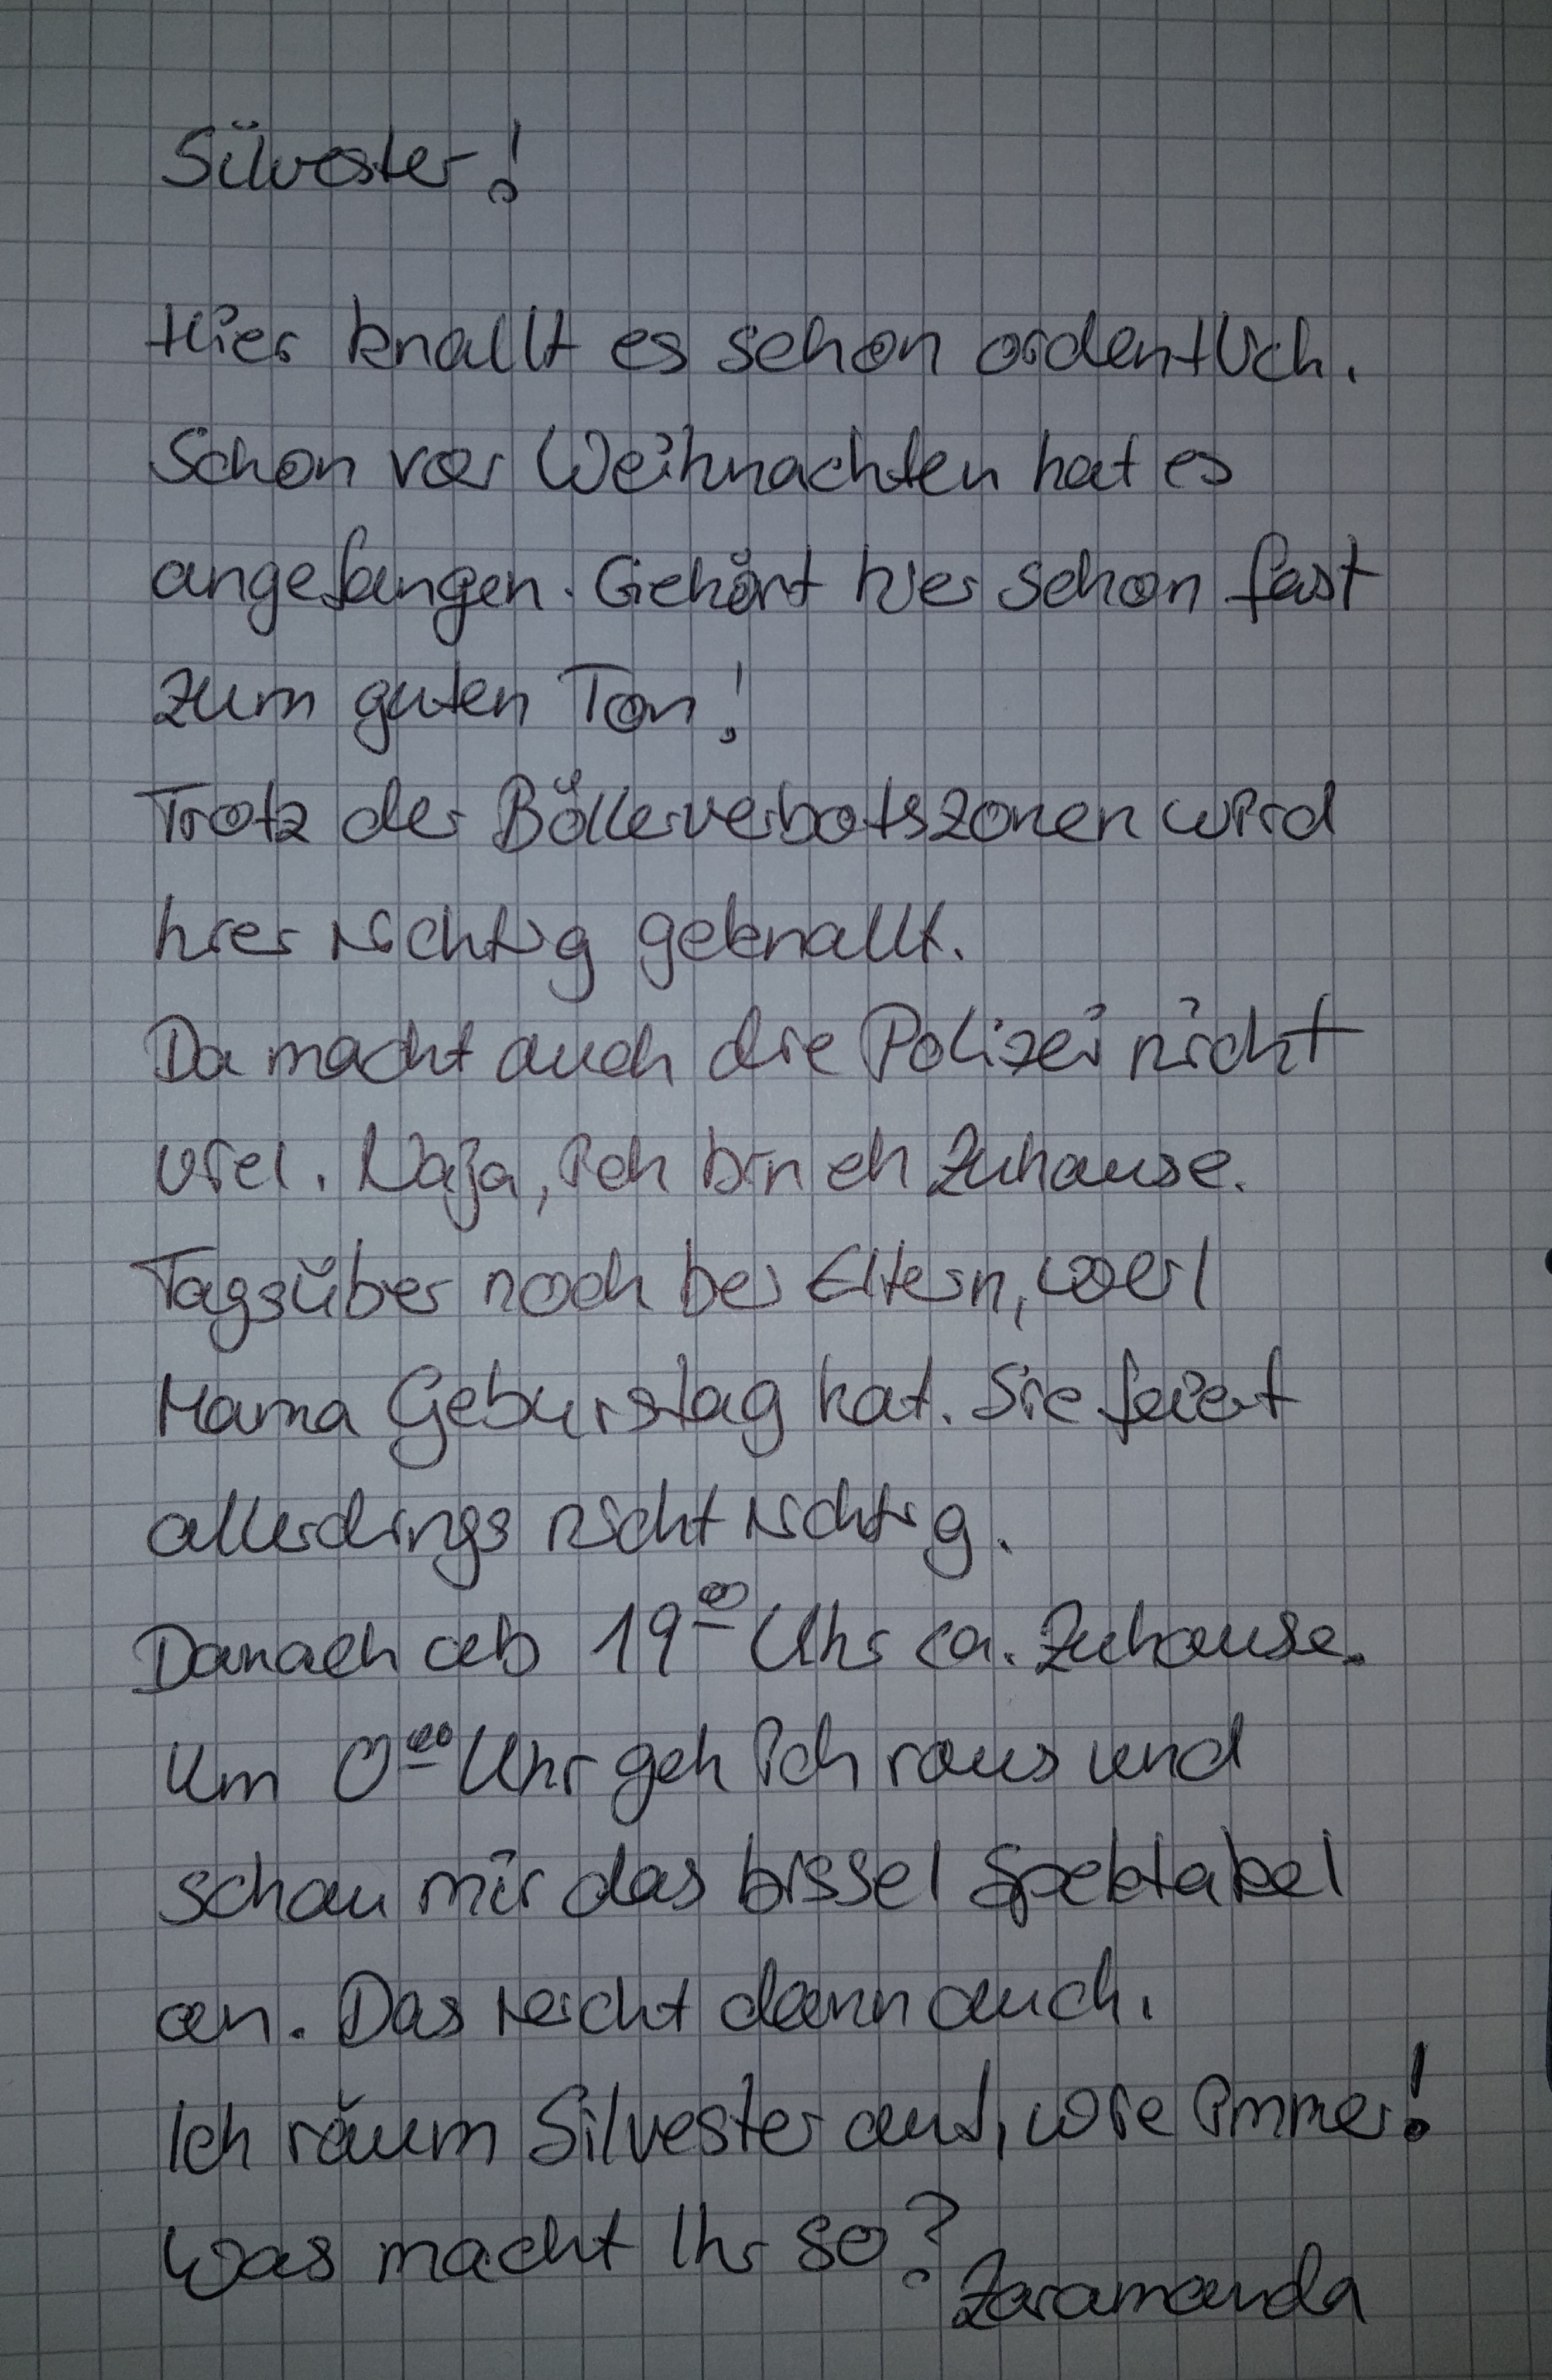 Silvester!
Hier knallt es schon ordentlich.
Schon vor Weihnachten hat es
angefangen. Gehört hier schon fast
zum guten Ton!
Trotz der Böllerverbotszonen wird
hier richtig geknallt.
Da macht auch die Polizei nicht
viel. Naja, ich bin eh Zuhause.
Tagsüber noch bei Eltern, weil
Mama Geburstag hat. Sie feiert
allerdings nicht richtig.
Danach ab 19⁰⁰ Uhr ca. Zuhause.
Um 0⁰⁰ Uhr geh ich raus und
schau mir das bissel Spektakel
an. Das reicht dann auch.
Ich räum Silvester auf, wie immer!
Was macht Ihr so?
Zaramanda